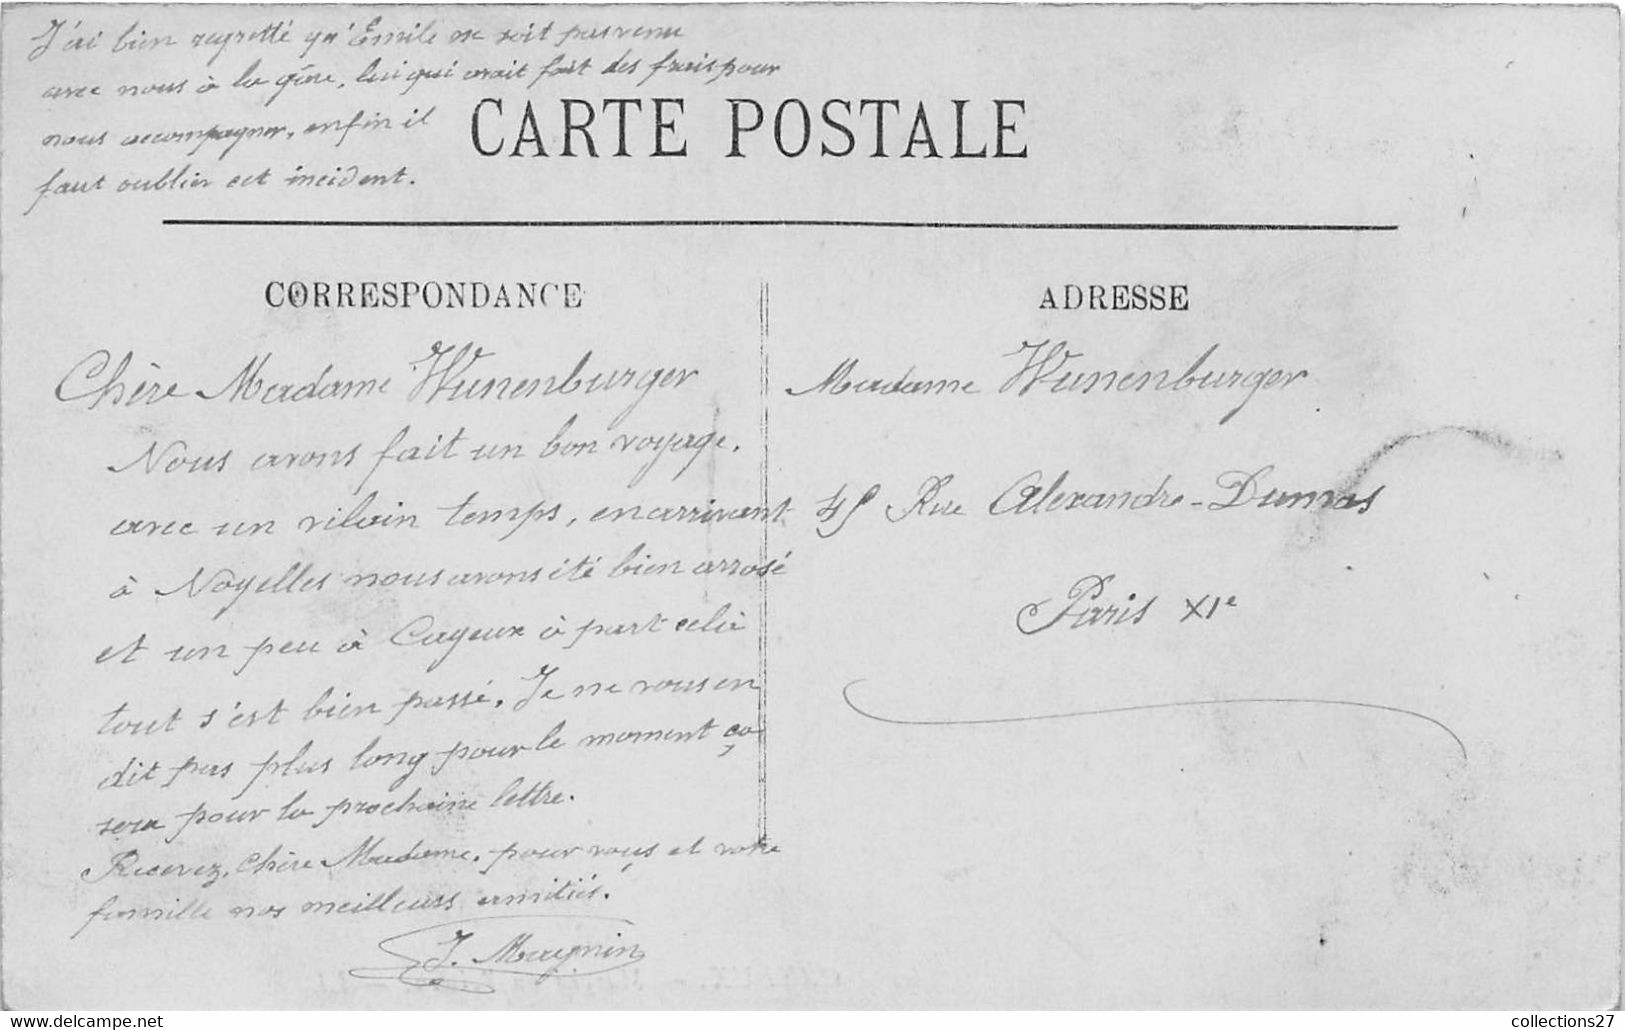 J'ai bien regretté qu'Emile ne soit pas venu
avec nous à la gare, lui qui avait fait des frais pour
nous accompagner, enfin il
faut oublier cet incident.
CARTE POSTALE
CORRESPONDANCE
Chère Madame Wunenburger
Nous avons fait un bon voyage,
avec un vilain temps, en arrivant
à Noyelles nous avons été bien arrosé
et un peu à Cayeux à part celà
tout s'est bien passé. Je ne vous en
dit pas plus long pour le moment ça
sera pour la prochaine lettre.
Recevez, chère Madame, pour vous et votre
famille nos meilleurs amitiés.
J. Magnin
ADRESSE
Madame Wunenburger
45 Rue Alexandre-Dumas
Paris XIe
collections27